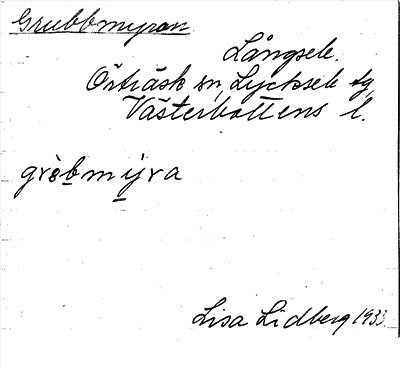 Grubbmyran
Långsele.
Örträsk sn, Lycksele tg,
Västerbottens l.
grèbmýra
Lisa Lidberg 1933